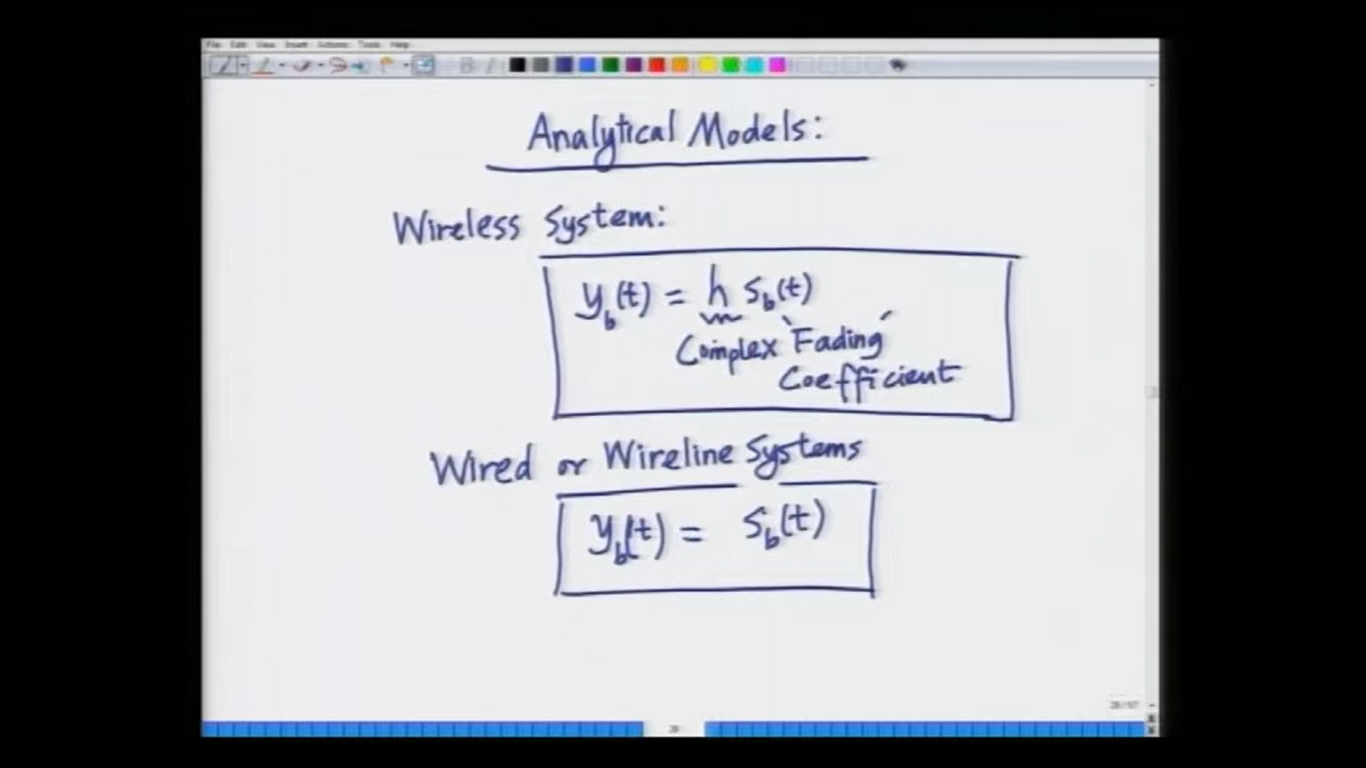 File Edit View Insert Actions Tools Help
Analytical Models:
Wireless System:
y_b(t) = h s_b(t)
Complex Fading
Coefficient
Wired or Wireline Systems
y_b(t) = s_b(t)